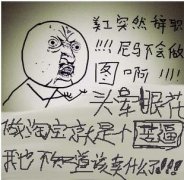 美工突然辞职
!!!!尼玛不会做
图啊!!!!
头晕眼花
做淘宝就是个苦逼
我也不知道该卖什么了!!!